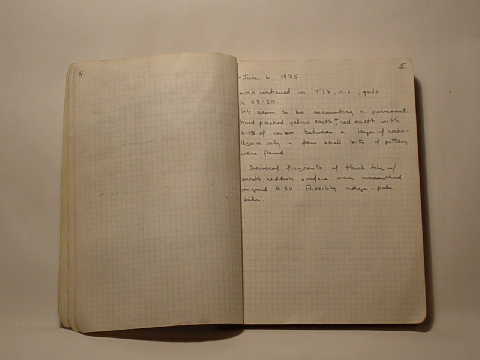 4
5.
June 6, 1975
work continued in T IX, n.L., grids
k 29-30.
We seem to be excavating a pavement.
Hard packed yellow earth, red earth with
bits of carbon between a layer of
only a few small bits of pottery
were found.
Several fragments of thick tile w/
smooth reddish surface were unearthed
in grid k 30. Possibly